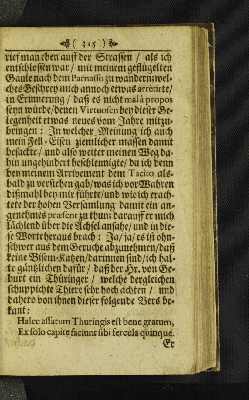 ( 315 )
rieff manchen auff der Strassen / als ich
entschlossen war / mit meinem geflügelten
Gaule nach dem Parnasso zu wandern/wel-
ches Geschrey mich annoch etwas arretirte/
in Erinnerung / daß es nicht malà propos
seyn würde/denen Virtuosen bey dieser Ge-
legenheit etwas neues vom Jahre mitzu-
bringen: In welcher Meinung ich auch
mein Fell-Eisen ziemlicher massen damit
besackte / und also weiter meinen Weg da-
hin ungehindert beschleunigte/ da ich denn
bey meinem Arrivement dem Tacito als-
bald zu verstehen gab/was ich vor Wahren
dißmahl bey mir führte/und wie ich trach-
tete der hohen Versamlung damit ein an-
genehmes præsent zu thun: darauff er mich
lächlend über die Achsel ansahe/ und in die-
se Worte heraus brach: Ja/ja/ es ist ohn-
schwer aus dem Geruche abzunehmen/daß
keine Bisem-Katzen/darinnen sind/ich hal-
te gäntzlichen dafür / daß der Hr. von Ge-
burt ein Thüringer / welche dergleichen
schuppichte Thiere sehr hoch achten / und
dahero von ihnen dieser folgende Vers be-
kant:
Halec assatum Thuringis est bene gratum,
Ex solo capite faciunt sibi fercula quinque.
Er